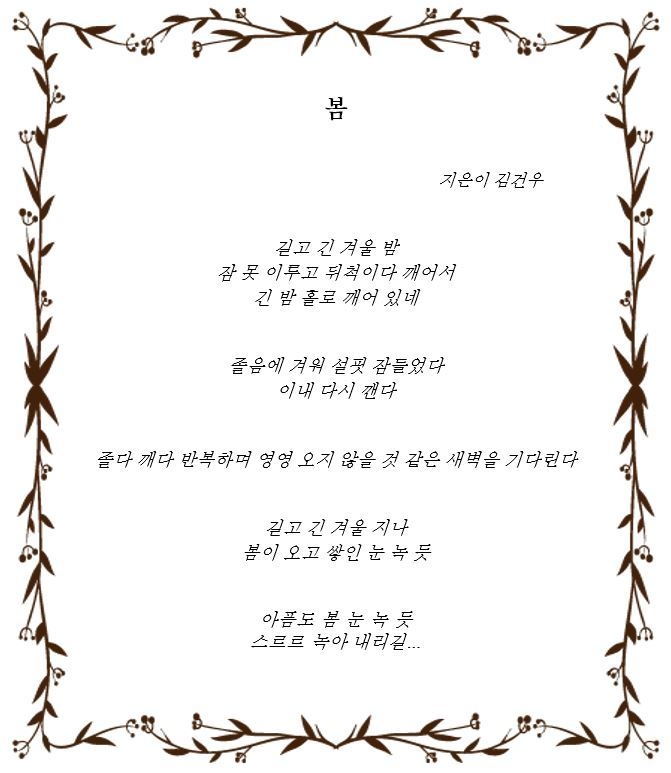 봄
지은이 김건우
길고 긴 겨울 밤
잠 못 이루고 뒤척이다 깨어서
긴 밤 홀로 깨어 있네
졸음에 겨워 설핏 잠들었다
이내 다시 깬다
졸다 깨다 반복하며 영영 오지 않을 것 같은 새벽을 기다린다
길고 긴 겨울 지나
봄이 오고 쌓인 눈 녹 듯
아픔도 봄 눈 녹 듯
스르르 녹아 내리길...